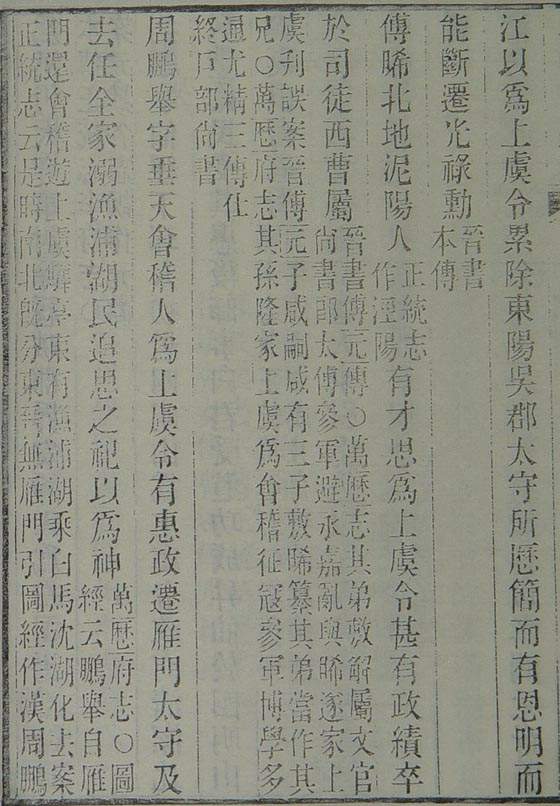 江以爲上虞令累除東陽吳郡太守所歷簡而有恩明而
能斷遷光祿勳晉書本傳
傅晞北地泥陽人正統志作涇陽有才思爲上虞令甚有政績卒
於司徒西曹屬晉書傅元傳〇萬歷志其弟敷解屬文官
尚書郎太傅參軍避永嘉亂與晞遂家上
虞刋誤案晉傅元子咸嗣咸有三子敷晞纂其弟當作其
兄〇萬歷府志其孫隆家上虞爲會稽征冦參軍博學多
通尤精三傳仕
終戸部尚書
周鵬舉字垂天會稽人爲上虞令有惠政遷雁門太守及
去任全家溺漁浦湖民追思之祀以爲神萬歷府志〇圖
經云鵬舉自雁
門還會稽遊上虞驛亭東有漁浦湖乘白馬沈湖化去案
正統志云是時南北旣分東晉無雁門引圖經作漢周鵬